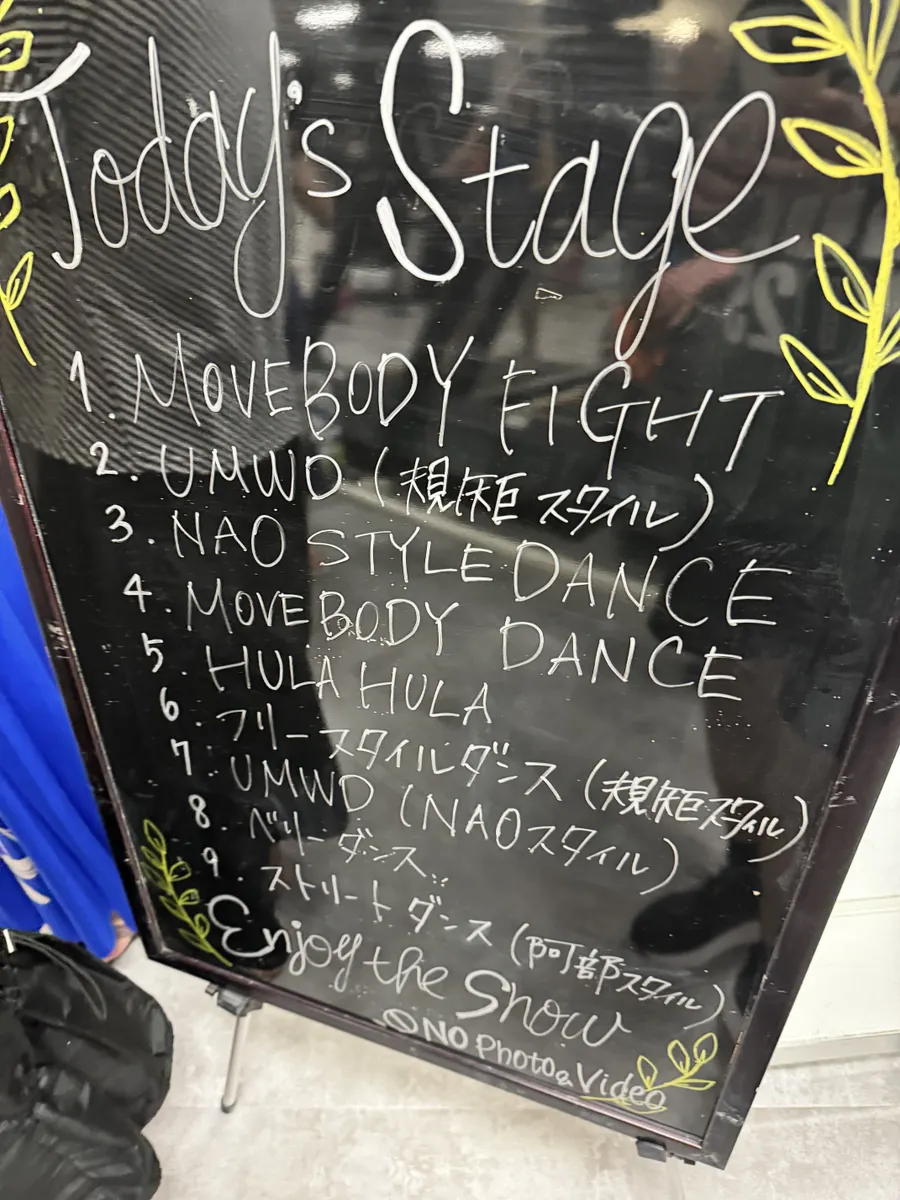 Today's Stage
1. MOVE BODY FIGHT
2. UMWD (規矩スタイル)
3. NAO STYLE DANCE
4. MOVE BODY DANCE
5. HULA HULA
6. フリースタイルダンス (規矩スタイル)
7. UMWD (NAOスタイル)
8. ベリーダンス
9. ストリートダンス (阿部スタイル)
Enjoy the Show
NO Photo & Video